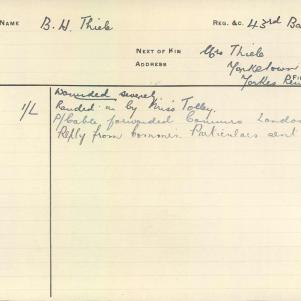 NAME B. H. Thiele REG. &C. 43rd Ba
NEXT OF KIN Mrs Thiele
ADDRESS Yorketown
Yorkes Pen
Wounded severely
1/L Handed in by Miss Tolley.
P/Cable forwarded Commrs London
Reply from Commrs Particulars sent